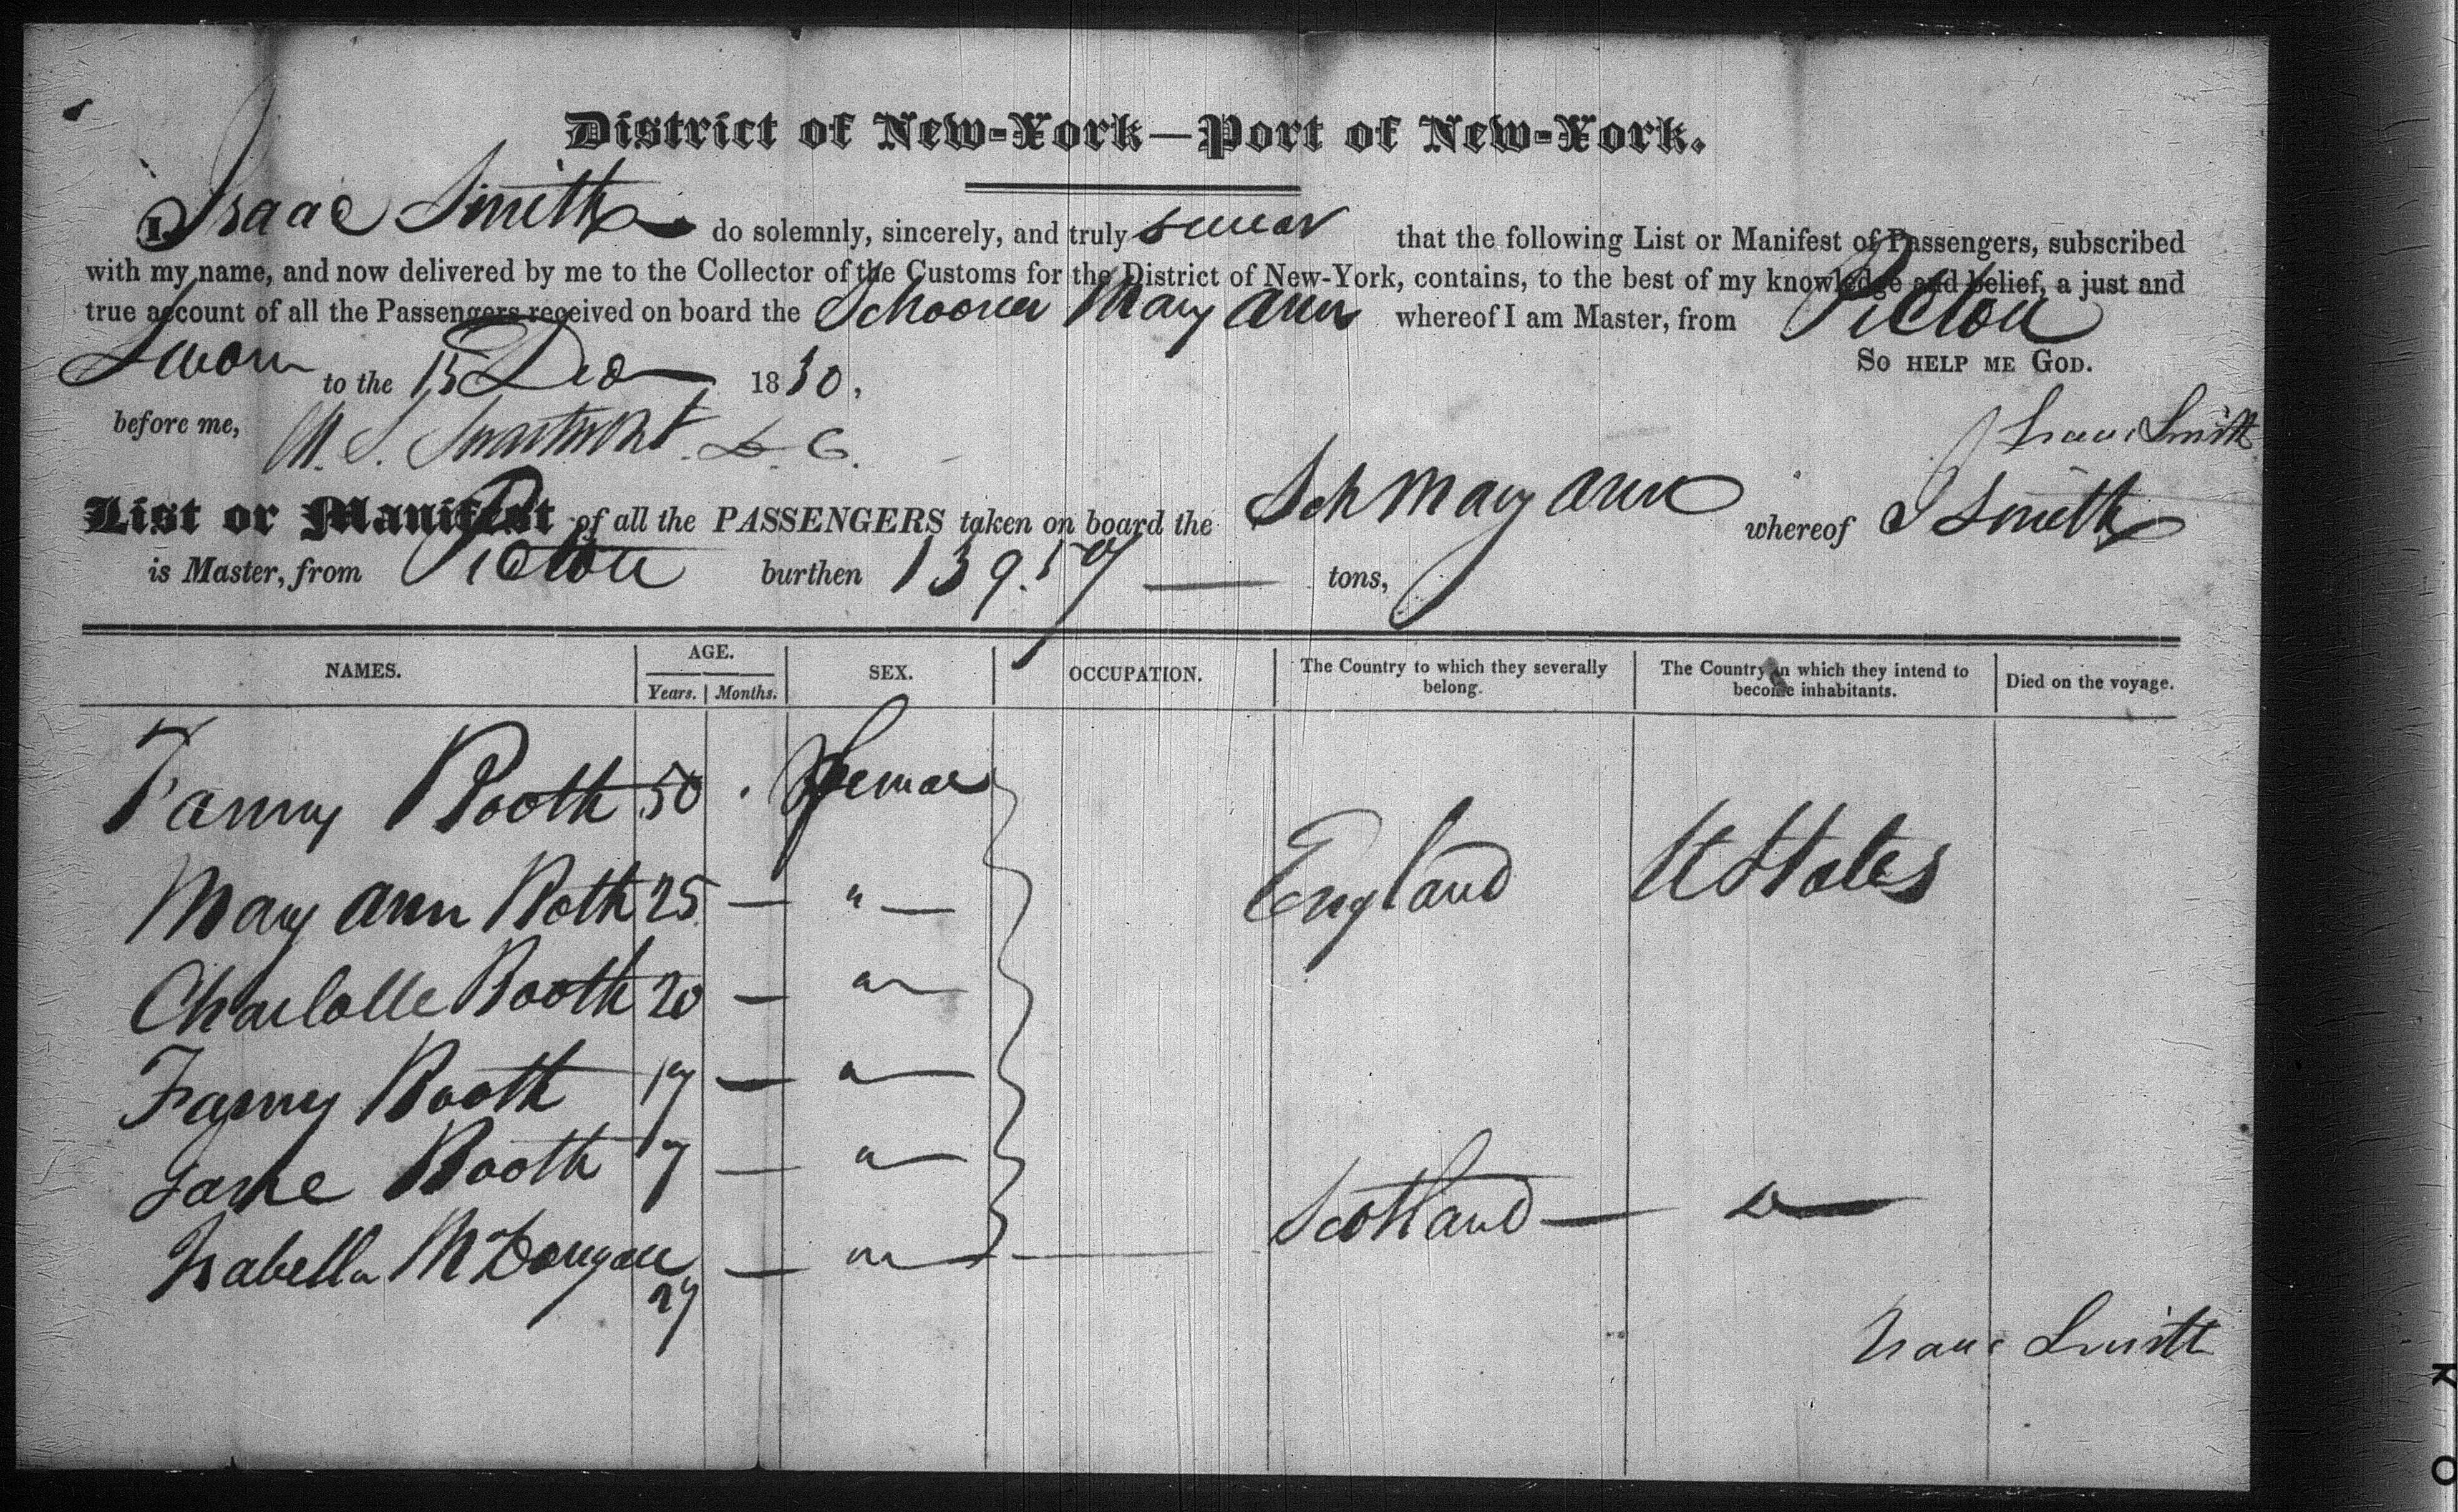 District of New-York—Port of New-York.
I, Isaac Smith do solemnly, sincerely, and truly swear that the following List or Manifest of Passengers, subscribed
with my name, and now delivered by me to the Collector of the Customs for the District of New-York, contains, to the best of my knowledge and belief, a just and
true account of all the Passengers received on board the Schooner Mary Ann whereof I am Master, from Pictou
So help me God.
Sworn to the 15 Dec 1830,
before me, M. S. Swartwout D. C.
Isaac Smith
List or Manifest of all the PASSENGERS taken on board the Sch Mary Ann whereof I Smith
is Master, from Pictou burthen 139. tons,
NAMES. AGE. Years. Months. SEX. OCCUPATION. The Country to which they severally belong. The Country in which they intend to become inhabitants. Died on the voyage.
Fanny Booth 50 Female
Mary Ann Both 25 — " — England U States
Charlotte Booth 20 — " —
Fanny Booth 17 — " —
Jane Booth 7 — " —
Isabella McDougall 27 — " — Scotland — Do —
Isaac Smith